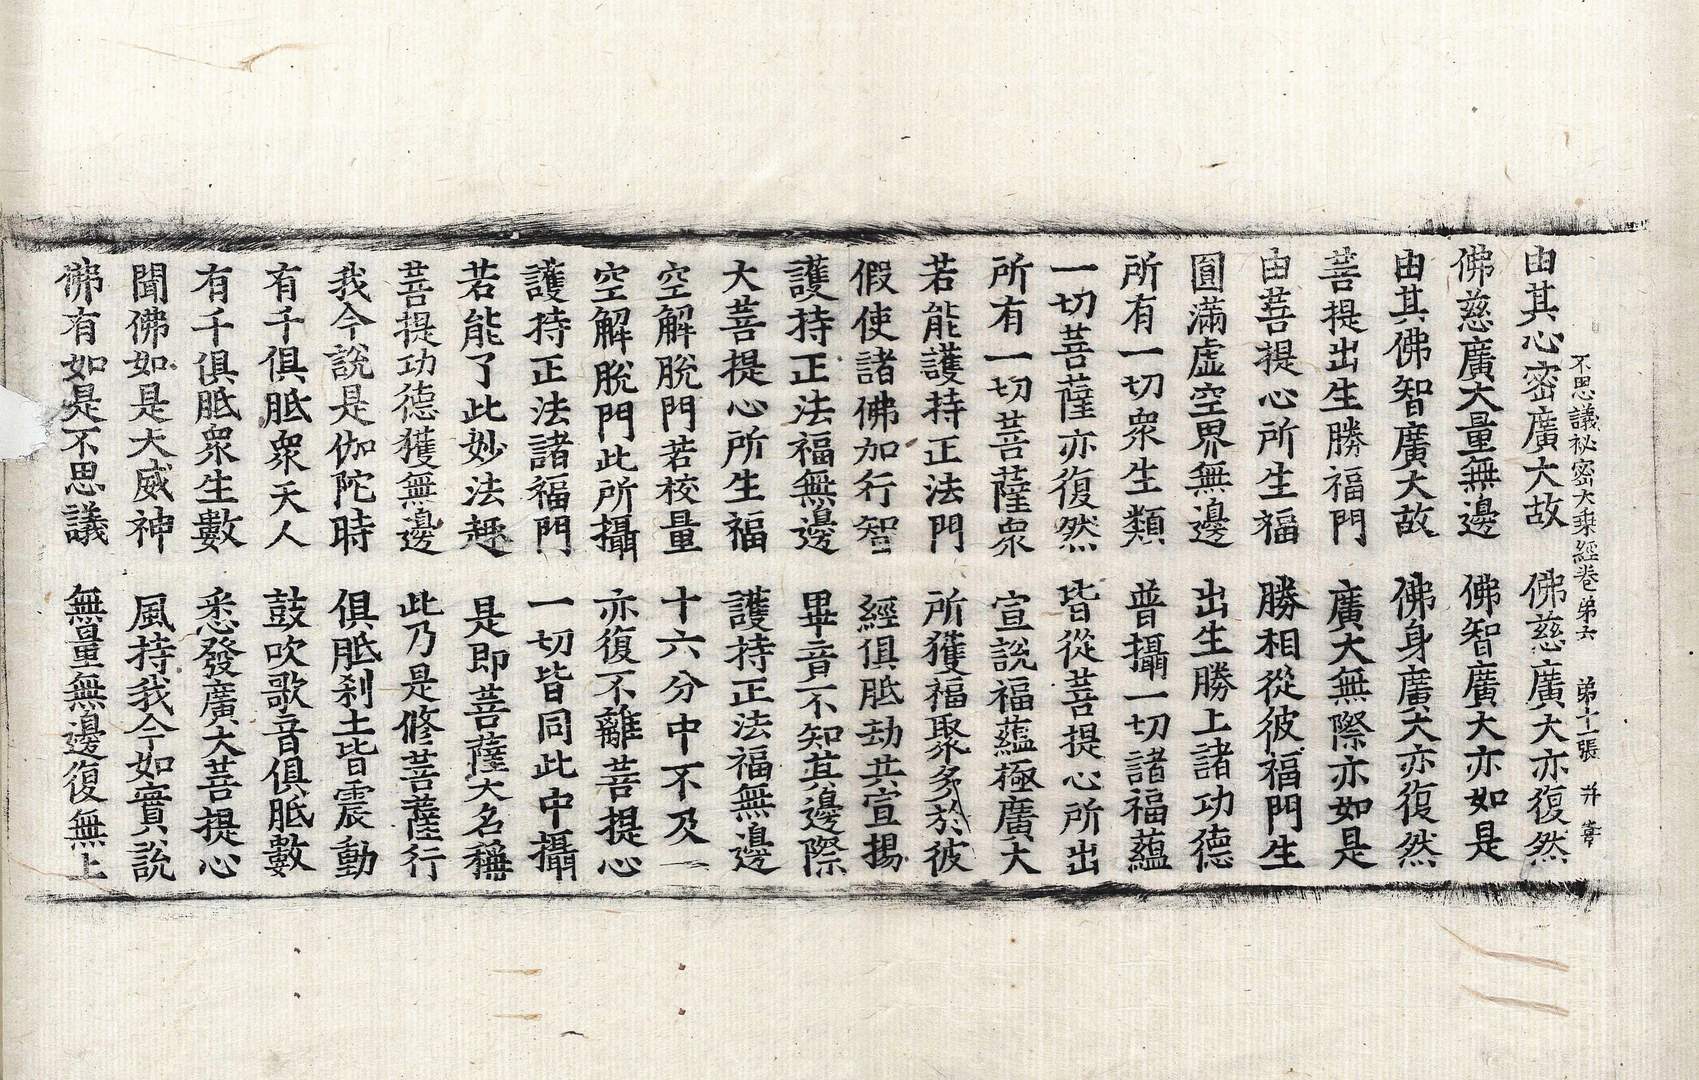 不思議祕密大乘經卷第六 第十一張
由其心密廣大故 佛慈廣大亦復然
佛慈廣大量無邊 佛智廣大亦如是
由其佛智廣大故 佛身廣大亦復然
菩提出生勝福門 廣大無際亦如是
由菩提心所生福 勝相從彼福門生
圓滿虛空界無邊 出生勝上諸功德
所有一切眾生類 普攝一切諸福蘊
一切菩薩亦復然 皆從菩提心所出
所有一切菩薩眾 宣說福蘊極廣大
若能護持正法門 所獲福聚多於彼
假使諸佛加行智 經俱胝劫共宣揚
護持正法福無邊 畢竟不知其邊際
大菩提心所生福 護持正法福無邊
空解脫門若校量 十六分中不及一
空解脫門此所攝 亦復不離菩提心
護持正法諸福門 一切皆同此中攝
若能了此妙法趣 是即菩薩大名稱
菩提功德獲無邊 此乃是修菩薩行
我今說是伽陀時 俱胝剎土皆震動
有千俱胝眾天人 鼓吹歌音俱胝數
有千俱胝眾生數 悉發廣大菩提心
聞佛如是大威神 風持我今如實說
佛有如是不思議 無量無邊復無上